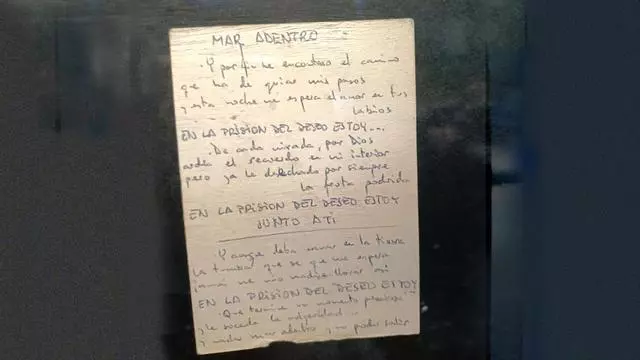 MAR ADENTRO
Y por fin he encontrado el camino
que ha de guiar mis pasos
y esta noche me espera el amor en tus
labios
EN LA PRISION DEL DESEO ESTOY...
De cada mirada, por Dios
ardía el recuerdo en mi interior
pero ya he desechado por siempre
la fruta podrida
EN LA PRISION DEL DESEO ESTOY
JUNTO A TI
Y aunque deba cavar en la tierra
la tumba que se que me espera
jamás me vio nadie llorar así
EN LA PRISION DEL DESEO ESTOY
Que termine un momento precioso
y le suceda la vulgaridad..
y nadar mar adentro y no poder salir